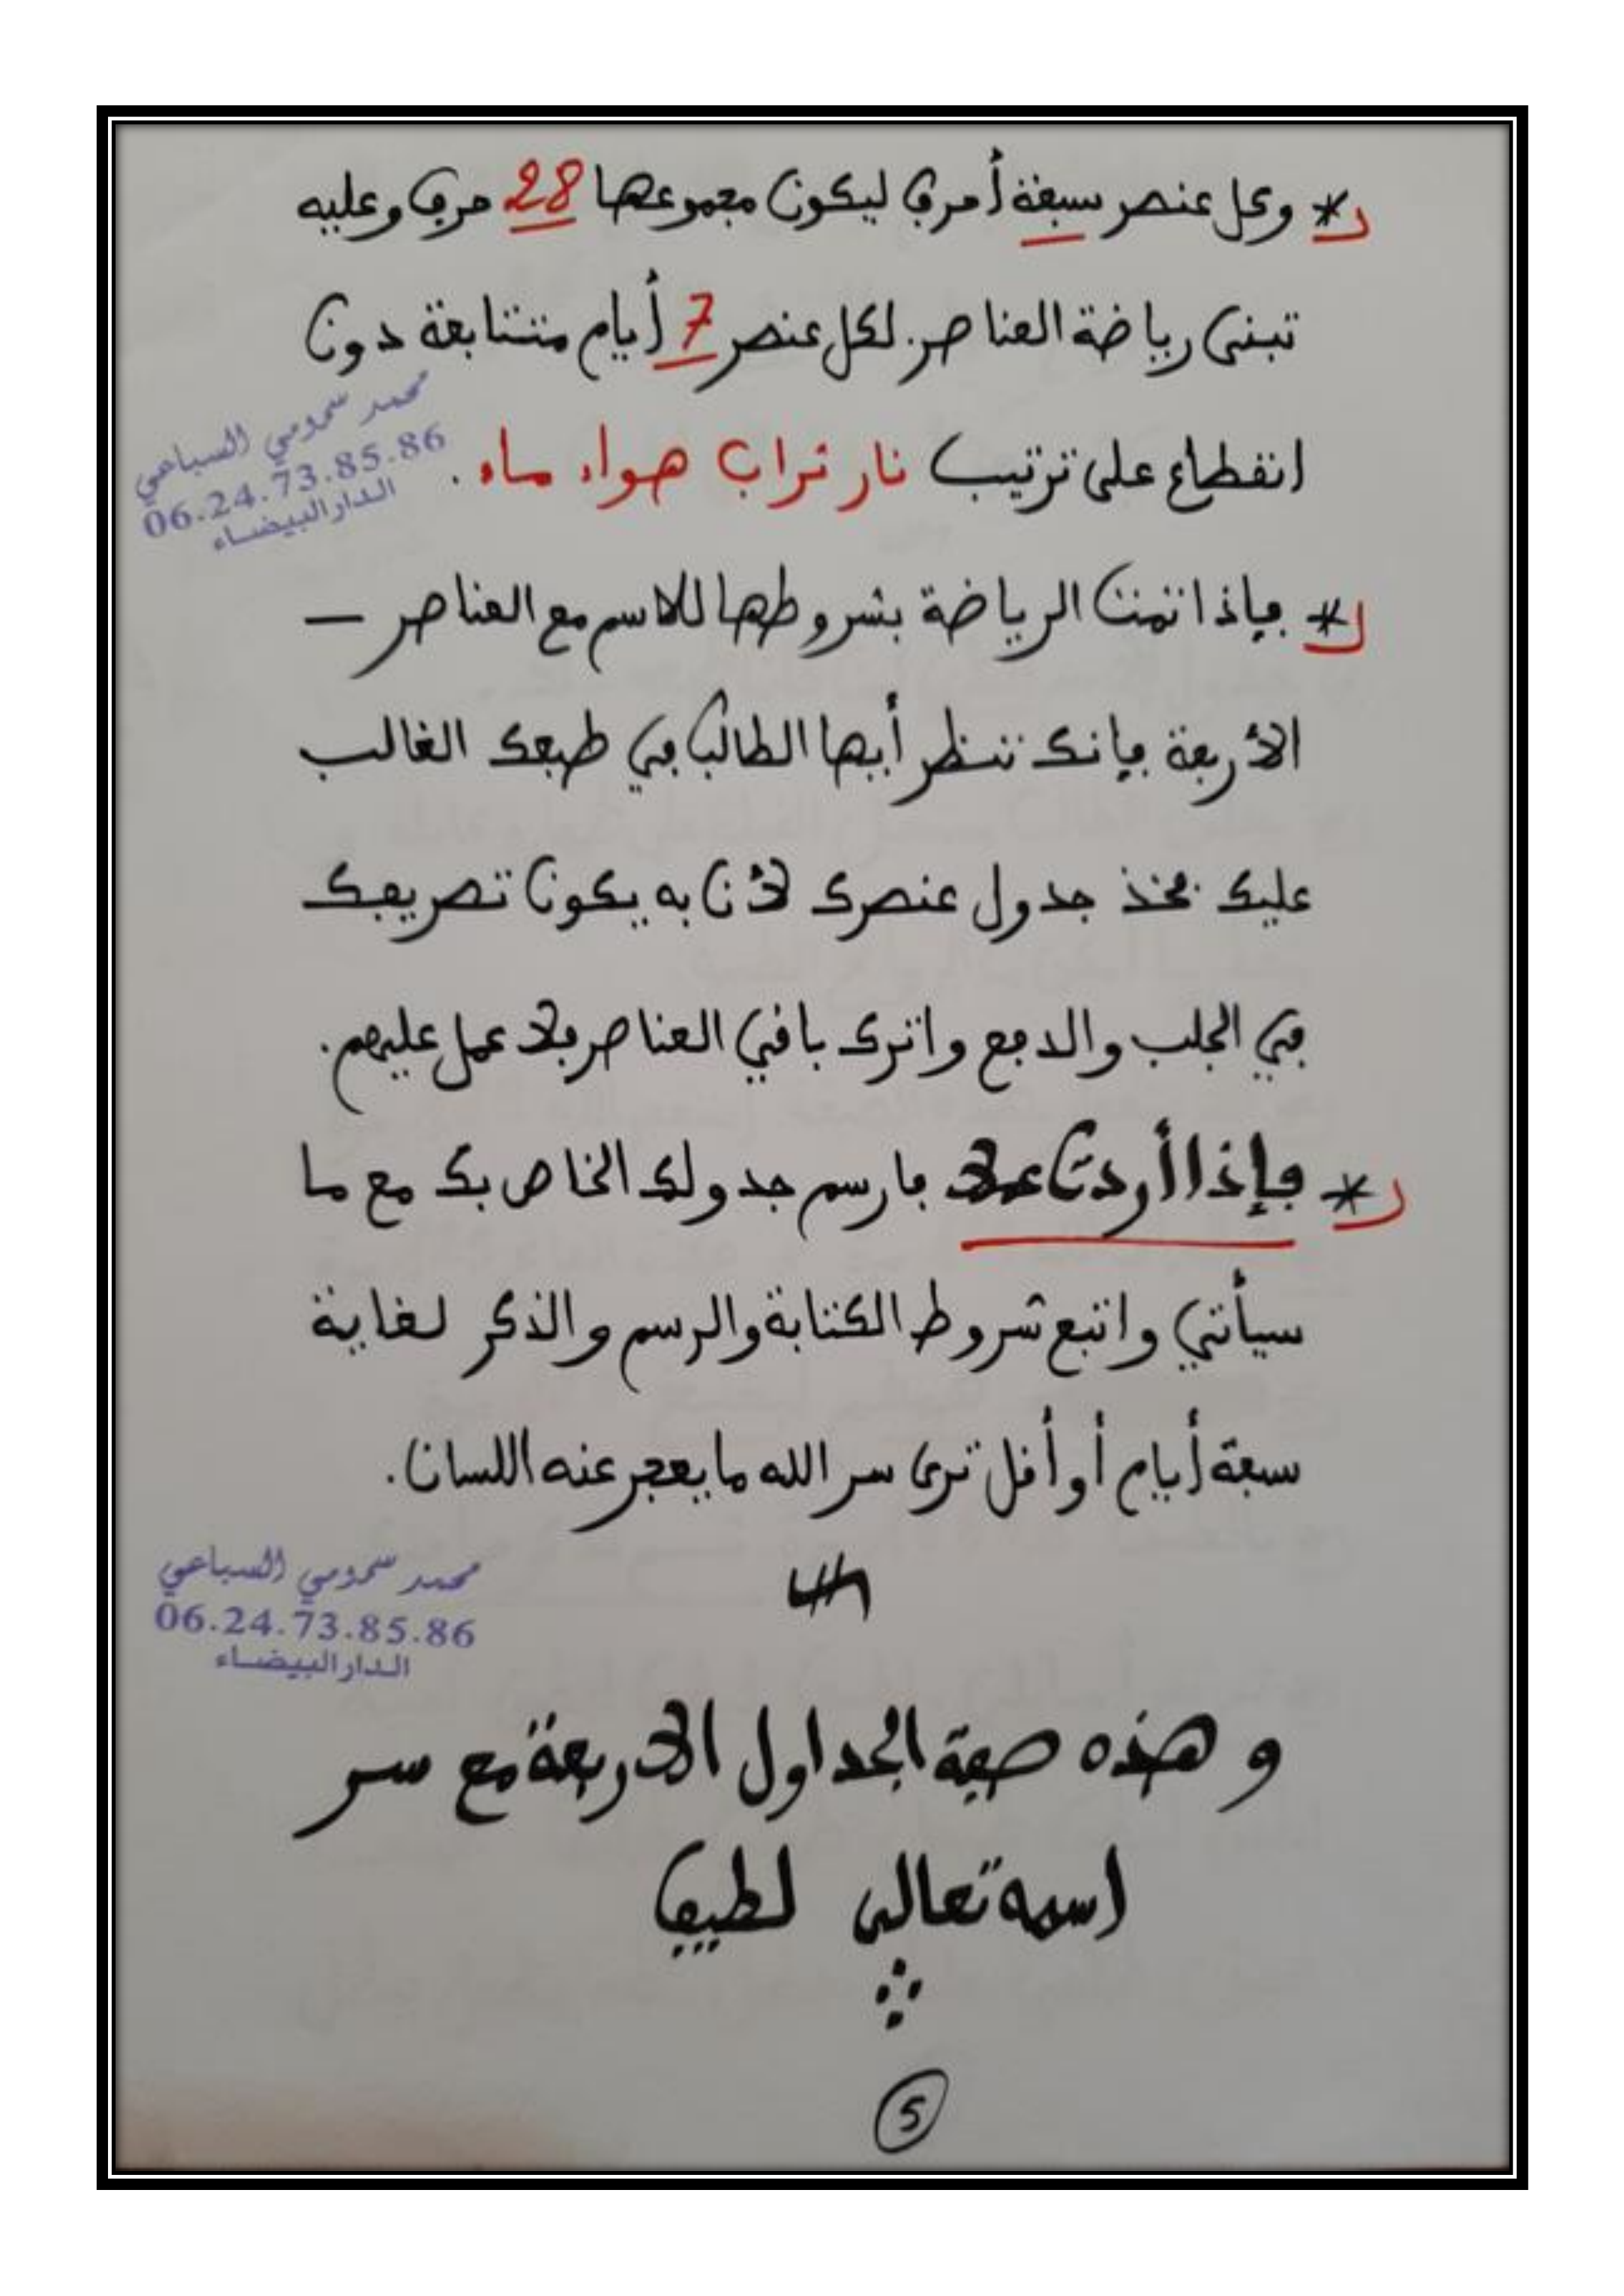 * وكل عنصر سبعة أحرف ليكون مجموعها 28 حرف وعليه
تبنى رياضة العناصر. لكل عنصر 7 أيام متتابعة دون
انقطاع على ترتيب نار تراب هواء ماء.
محمد سحمومي السباعي
06.24.73.85.86
الدار البيضاء
* فإذا تمت الرياضة بشروطها للاسم مع العناصر –
الأربعة فإنك تنظر أيها الطالب في طبعك الغالب
عليك فخذ جدول عنصرك لأن به يكون تصريفك
في الجلب والدفع واترك باقي العناصر فلا عمل عليهم.
* فإذا أردت عملا فارسم جدولك الخاص بك مع ما
سيأتي واتبع شروط الكتابة والرسم والذكر لغاية
سبعة أيام أو أقل ترى سر الله ما يعجز عنه اللسان.
محمد سحمومي السباعي
06.24.73.85.86
الدار البيضاء
وهذه صفة الجداول الأربعة مع سر
اسمه تعالى لطيف
5